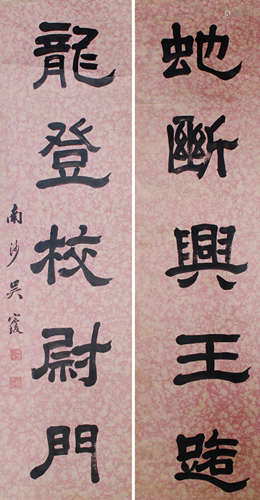 虵斷興王路
龍登校尉門
南沙吳